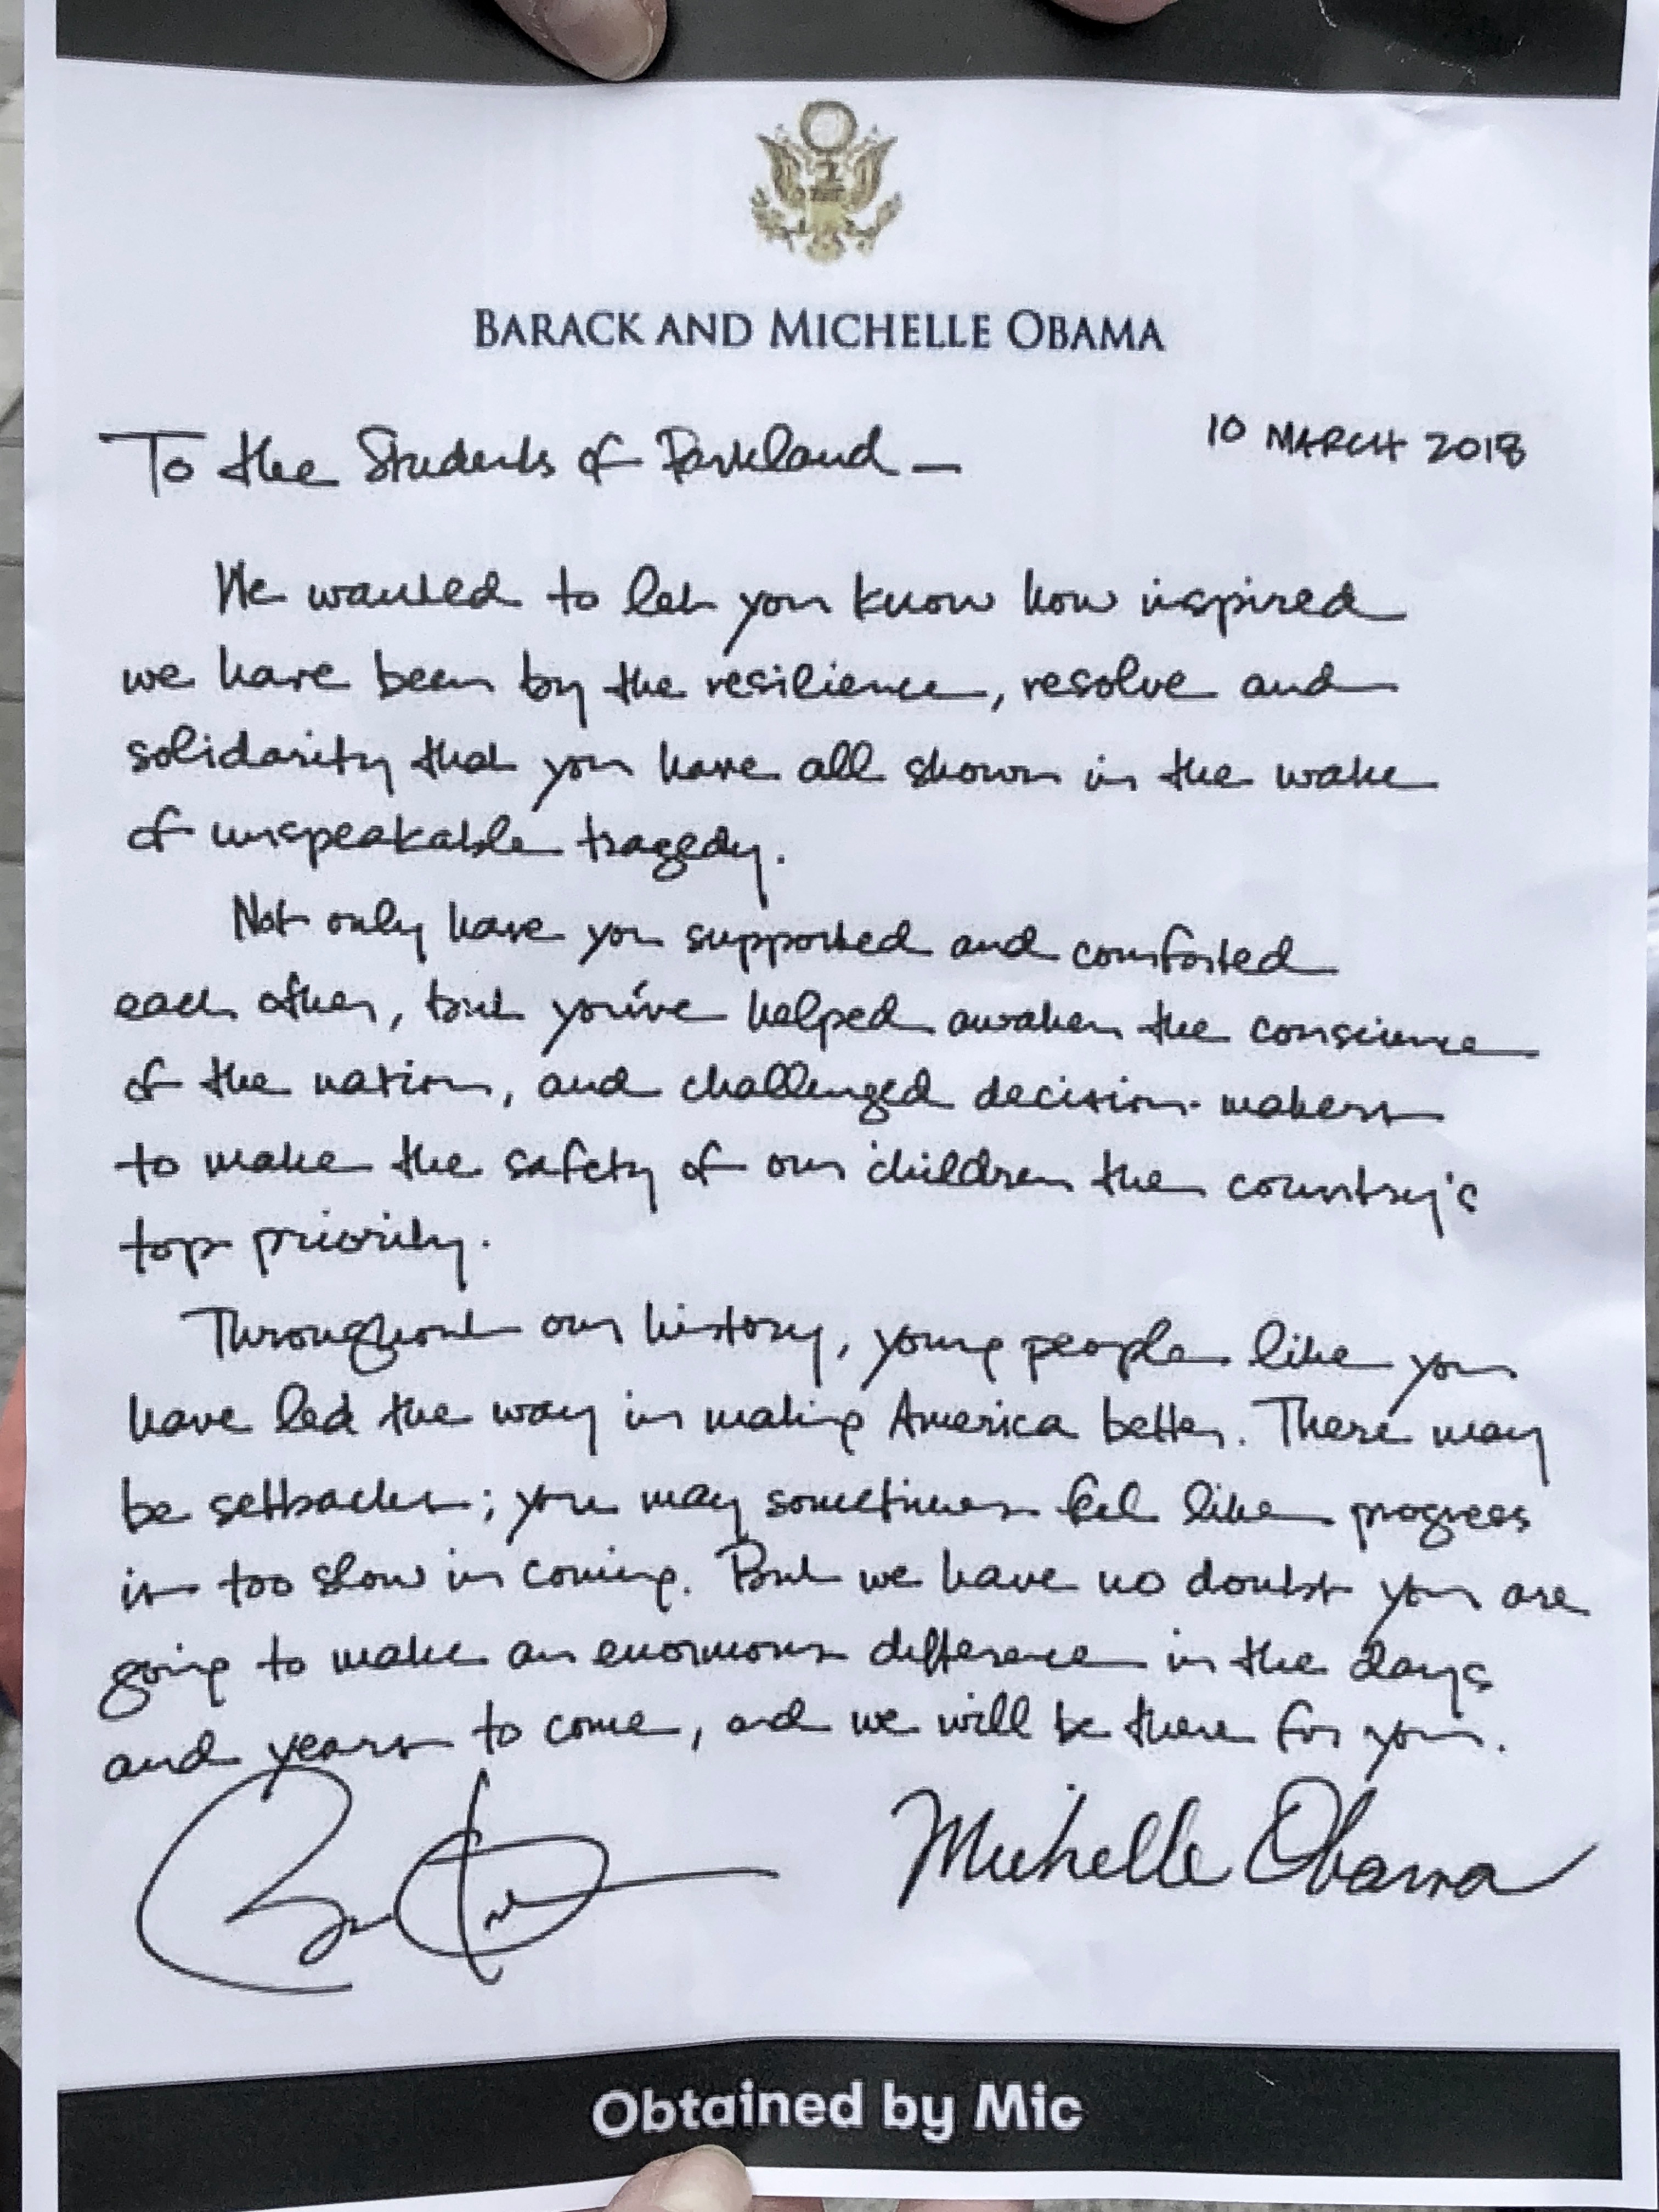 BARACK AND MICHELLE OBAMA
10 MARCH 2018
To the Students of Parkland —
We wanted to let you know how inspired
we have been by the resilience, resolve and
solidarity that you have all shown in the wake
of unspeakable tragedy.
Not only have you supported and comforted
each other, but you've helped awaken the conscience
of the nation, and challenged decision-makers
to make the safety of our children the country's
top priority.
Throughout our history, young people like you
have led the way in making America better. There may
be setbacks; you may sometimes feel like progress
is too slow in coming. But we have no doubt you are
going to make an enormous difference in the days
and years to come, and we will be there for you.
Michelle Obama
Obtained by Mic